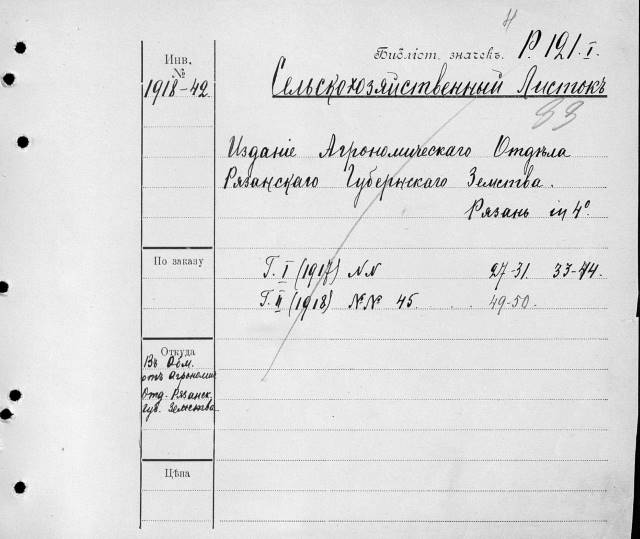 Н
Библіот. значекъ. Р. 121. I.
Инв.
№
1918-42
Сельскохозяйственный Листокъ
33
Изданіе Агрономическаго Отдѣла
Рязанскаго Губернскаго Земства.
Рязань in 4°.
По заказу
Г. I (1917) NN 27-31. 33-44.
Г. II (1918) №№ 45. 49-50.
Откуда
Въ Обм.
отъ Агрономич
Отд. Рязанск.
Губ. Земства
Цѣна